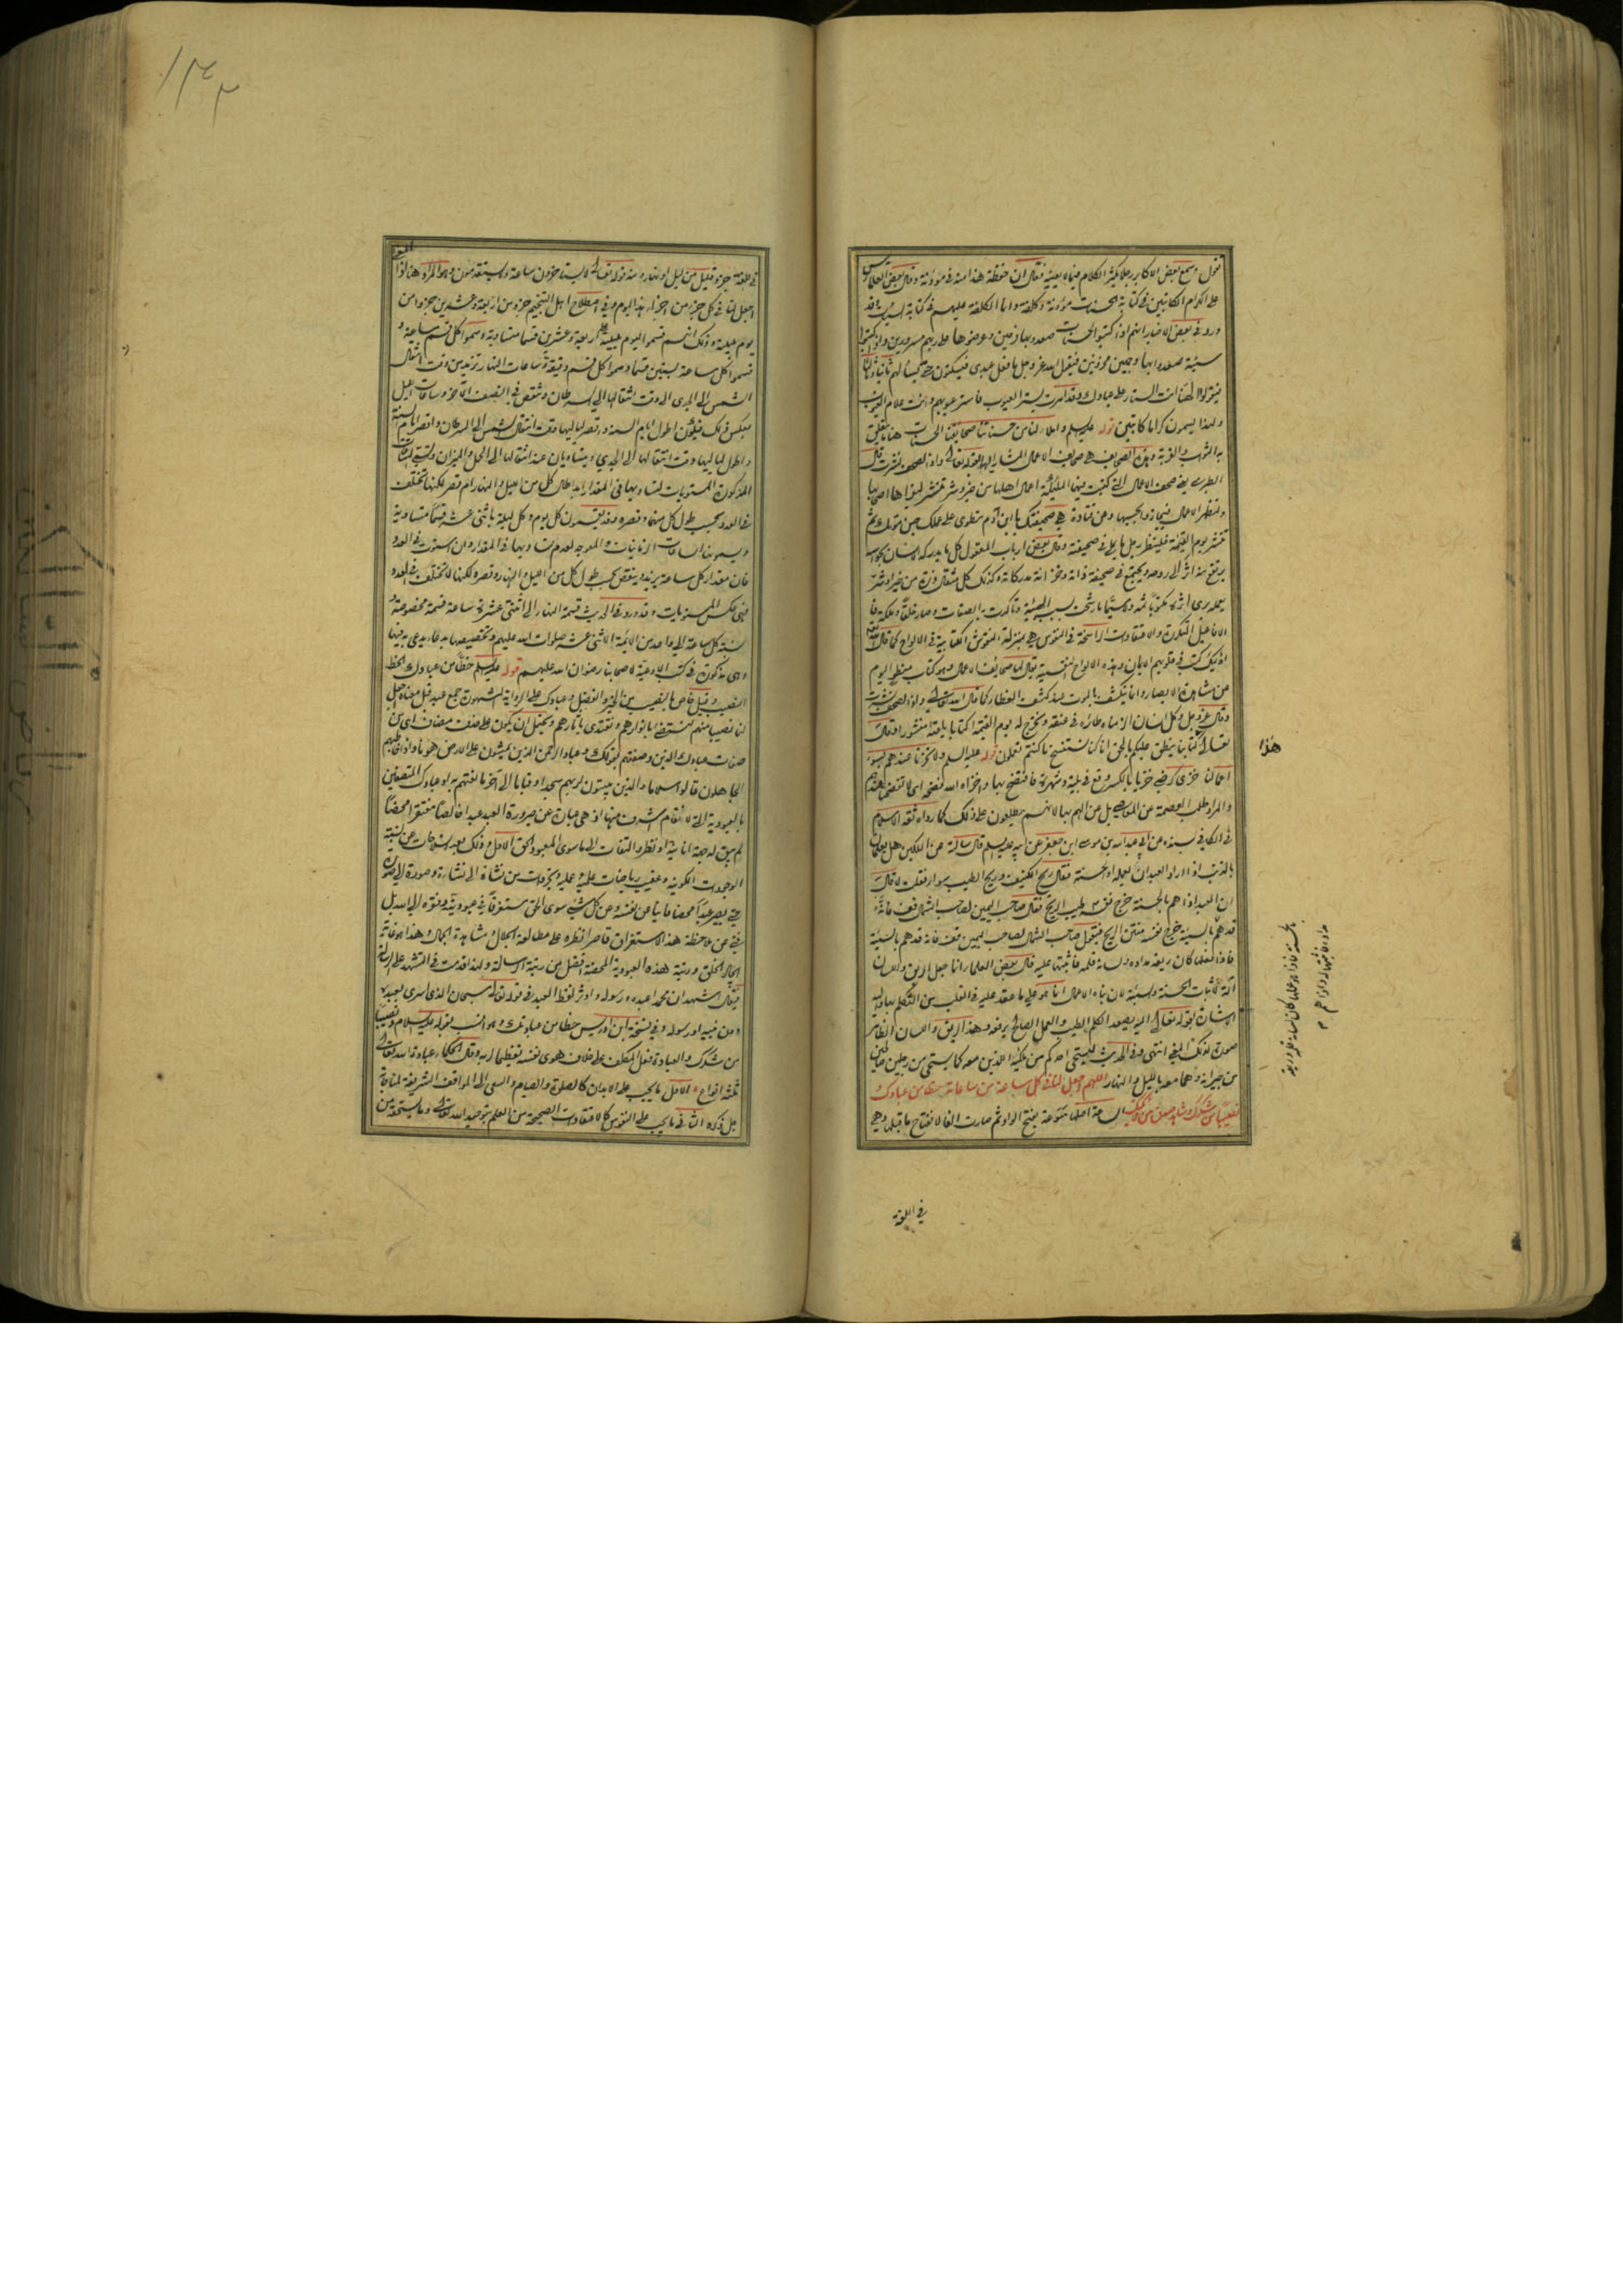 فتول وسمع بعض الاكابر رجلا يكثر الكلام فيما لا يعنيه فقال ان حفظة هذا منه في مؤونة وقال بعض العلماء
على الكرام الكاتبين في كتابة الحسنات مؤونة وكلفة وانما الكلفة عليهم في كتابة السيئات فقد
ورد في بعض الاخبار انهم اذا كتبوا الحسنات صعدوا بها فرحين وعرضوها على ربهم مسرورين واذا كتبوا
سيئة صعدوا بها وجمين محزونين فيقول الله عز وجل ما فعل عبدي فيسكتون حتى يسألهم ثانيا وثالثا
فيقولوا الهنا انت الستار على عبادك وقد امرت بستر العيوب فاستر عيوبهم وانت علام الغيوب
ولهذا يسمون كراما كاتبين قوله عليه السلم واملأ لنا من حسناتنا صحائفنا الحسنات هنا ما يتعلق
به الثواب والقربة وهذه الصحايف هي صحايف الاعمال المشار اليها بقوله تعالى واذا الصحف نشرت قال
الطبرسي يعني صحف الاعمال التي كتبت فيها الملئكة اعمال اهلها من خير وشر تنشر ليقرأها اصحابها
ولتظهر الاعمال فيجازوا بحسبها وعن قتادة هي صحيفتك يا ابن آدم تطوى على عملك حين موتك ثم
تنشر يوم القيمة فلينظر رجل ما يملي في صحيفته وقال بعض ارباب المعقول كل ما يدركه الانسان بحواسه
يرتفع منه اثر الى روحه ويجتمع في صحيفة ذاته وخزانة مدركاته وكذلك كل مثقال ذرة من خير او شر
يعمله يرى اثره مكتوبا ثمه ولا سيما ما رسخت بسببه الهيئة وتأكدت به الصفات وصار خلقا وملكة فا
لافاعيل المتكررة والاعتقادات الراسخة في النفوس هي بمنزلة النقوش الكتابية في الالواح كما قال الله تعالى
اولئك كتب في قلوبهم الايمان وهذه الالواح النفسية يقال لها صحائف الاعمال وهو كتاب منطو اليوم
عن مشاهدة الابصار وانما ينكشف بالموت عند كشف الغطاء كما قال الله تعالى واذا الصحف نشرت
وقال عز وجل وكل انسان الزمناه طائره في عنقه ونخرج له يوم القيمة كتابا يلقيه منشورا وقال
تعالى هذا كتابنا ينطق عليكم بالحق انا كنا نستنسخ ما كنتم تعملون قوله عليه السلم ولا تخزنا عندهم بسوء
اعمالنا خزي كرضي خزيا بالكسر وقع في بلية وشهرة فافتضح بها واخزاه الله فضحه اي لا تفضحنا عندهم
والمراد طلب العصمة عن المعاصي بل عن الهم بها لانهم يطلعون على ذلك كما رواه ثقة الاسلام
في الكافي بسنده عن عبد الله بن موسى ابن جعفر عن ابيه عليه السلم قال سألته عن الملكين هل يعلمان
بالذنب اذا اراد العبد ان يفعله او الحسنة فقال ريح الكنيف وريح الطيب سواء فقلت لا قال
ان العبد اذا هم بالحسنة خرج نفسه طيب الريح فقال صاحب اليمين لصاحب الشمال قف فانه
قد هم بالسيئة خرج نفسه منتن الريح فيقول صاحب الشمال لصاحب اليمين قف فانه قد هم بالسيئة
فاذا فعلها كان ريقه مداده ولسانه قلمه فاثبتها عليه قال بعض العلماء انما جعل الريق واللسان
آلة لاثبات الحسنة والسيئة لان بناء الاعمال انما هو على ما عقد عليه في القلب من التكلم بها واليه
الاشارة بقوله تعالى اليه يصعد الكلم الطيب والعمل الصالح يرفعه وهذا الريق واللسان الظاهر
صورة لذلك المعنى انتهى وفي الحديث ليستحي احدكم من ملكيه اللذين معه كما يستحي من رجلين صالحين
من جيرانه وهما معه بالليل والنهار اللهم واجعل لنا في كل ساعة من ساعاته حظا من عبادك
ونصيبا من شكرك وشاهد صدق من ملئكتك الساعة اصلها سَوَعة بفتح الواو ثم صارت الفا لانفتاح ما قبلها وهي
هذا
بالحسنة فاذا هو عملها كان لسانه قلمه وريقه
مداده فاثبتها له واذا هم
في اللغة
١٣٣
في اللغة جزء قليل من ليل او نهار ومنه قوله تعالى لا يستأخرون ساعة ولا يستقدمون وهو المراد هنا اذ
اجعل لنا في كل جزء من اجزاء هذا اليوم وفي اصطلاح اهل التنجيم جزء من اربعة وعشرين جزءا من
يوم بليلته وذلك انهم قسموا اليوم بليلته على اربعة وعشرين قسما متساوية وسموا كل قسم ساعة و
قسموا كل ساعة بستين قسما وسموا كل قسم دقيقة وساعات النهار تزيد من وقت انتقال
الشمس الى الجدي الى وقت انتقالها الى السرطان وتنقص في النصف الآخر وساعات الليل
بعكس ذلك فيكون اطول ايام السنة واقصر لياليها وقت انتقال الشمس الى السرطان واقصر ايام السنة
واطول لياليها وقت انتقالها الى الجدي ويتساويان عند انتقالها الى الحمل والميزان وتسمى الساعات
المذكورة المستويات لتساويها في المقدار ابدا طال كل من الليل والنهار ام قصر لكنها تختلف
في العدد بحسب طول كل منهما وقصره وقد يقسمون كل يوم وكل ليلة باثنى عشر قسما متساوية
ويسمونها الساعات الزمانيات والمعوجة لعدم تساويها في المقدار وان استوت في العدد
فان مقدار كل ساعة يزيد وينقص بحسب طول كل من الليل والنهار وقصره ولكنها لا تختلف في العدد
فهي عكس المستويات وقد ورد في الحديث قسمة النهار الى اثنتي عشرة ساعة قسمة مخصوصة و
نسبة كل ساعة الى واحد من الائمة الاثنى عشر صلوات الله عليهم وتخصيصها بدعاء يدعى به فيها
وهي مذكورة في كتب الادعية لاصحابنا رضوان الله عليهم قوله عليه السلم حظا من عبادك الحظ
النصيب وقيل خاص بالنصيب من الخير والفضل وعبادك على الرواية المشهورة جمع عبد قيل معناه اجعل
لنا نصيبا منهم لنستضئ بانوارهم ونقتدي بآثارهم ويحتمل ان يكون على حذف مضاف اي من
صفات عبادك الذين وصفتهم بقولك وعباد الرحمن الذين يمشون على الارض هونا واذا خاطبهم
الجاهلون قالوا سلاما والذين يبيتون لربهم سجدا وقياما الى آخر ما نعتهم به او عبادك المتصفين
بالعبودية التي لا مقام اشرف منها اذ هي عبارة عن صيرورة العبد عبدا خالصا مفتقرا محضا
لم يبق له جهة انانية او نظر والتفات الى ما سوى المعبود الحق الاول وذلك بعد انسلاخات عن نسبة
الوجودات الكونية وعقيب رياضات علمية وعملية وتجردات من نشأة الى نشأة وصورة الى صورة
حتى يصير عبدا محضا فانيا عن نفسه وعن كل شيء سوى الحق مستغرقا في عبوديته وفقره الى الله بل
فني عن ملاحظة هذا الاستغراق قاصرا نظره على مطالعة الجلال ومشاهدة الجمال وهذا هو غاية
ايجاد الخلق ورتبة هذه العبودية المحضة افضل من رتبة الرسالة ولهذا قدمت في التشهد على الرسالة
فيقال اشهد ان محمدا عبده ورسوله واوثر لفظ العبد في قوله تعالى سبحان الذي اسرى بعبده
دون نبيه او رسوله وفي نسخة ابن ادريس حظا من عبادتك وهو انسب بقوله عليه السلام ونصيبا
من شكرك والعبادة فعل المكلف على خلاف هوى نفسه تعظيما لربه وقال الحكماء عبادة الله تعالى
ثلثة انواع الاول ما يجب على الابدان كالصلوة والصيام والسعي الى المواقف الشريفة لمناجاته
جل ذكره الثاني ما يجب على النفوس كالاعتقادات الصحيحة من العلم بتوحيد الله تعالى وما يستحقه من